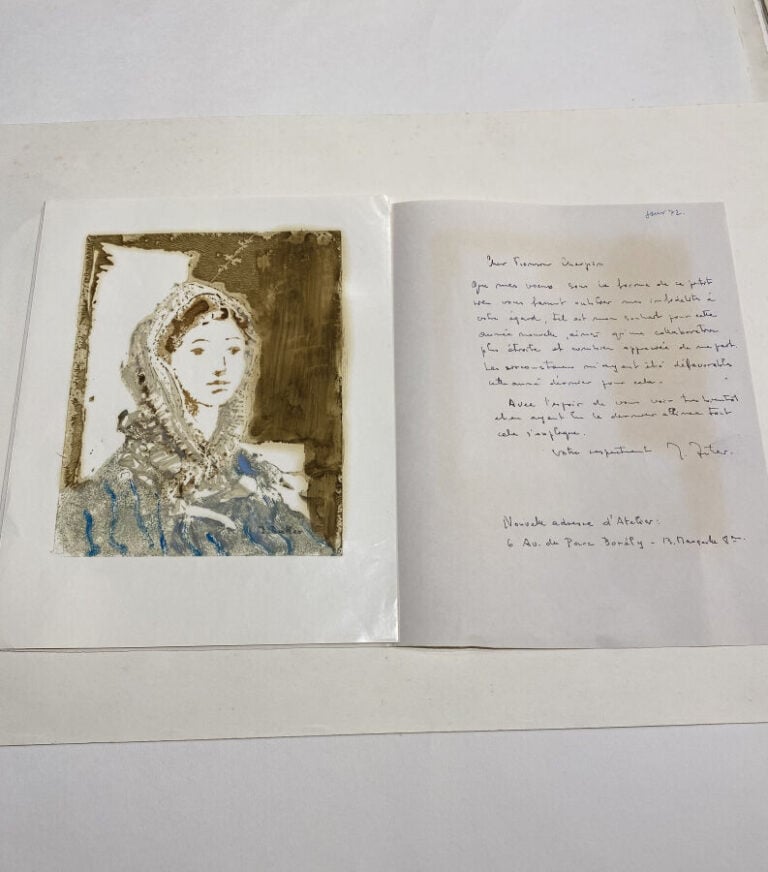 Janv 72.
Cher Monsieur
Que mes voeux sous la forme de ce petit
vous fassent oublier mes infidélités à
votre égard, tel est mon souhait pour cette
année nouvelle, ainsi qu'une collaboration
plus étroite et combien appréciée de ma part.
Les circonstances m'ayant été défavorables
cette année dernière pour cela.
Avec l'espoir de vous voir très bientôt
et en ayant le dernier tout
cela s'explique.
votre respectueux
Nouvelle adresse d'Atelier:
6 Av. du Parc Borély -